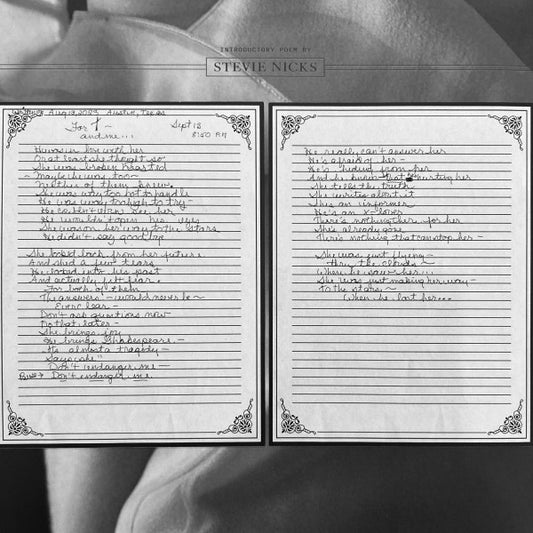 INTRODUCTORY POEM BY
STEVIE NICKS
Aug 13, 2023 Austin, Texas
For T —
and me...
Sept 13
8:50 PM
He was in love with her
Or at least she thought so
She was broken hearted
~ Maybe he was too ~
Neither of them knew
She was way too hot to handle
He was way too high to try —
He couldn't even see her
He wouldn't open his eyes
She was on her way to the stars
He didn't say goodbye
She looked back from her future
And shed a few tears
He looked into his past
And actually felt fear —
For both of them
The answers — would never be ~
Ever clear —
Don't ask questions now
Do that later —
She brings joy
He brings Shakespeare —
It's almost a tragedy —
Says she"
Don't endanger me —
Don't endanger me
He really can't answer her
He's afraid of her —
He's hiding from her
And he knows that he's hurting her
She tells the truth
She writes about it
She's an informer
He's an x-lover
There's nothing there for her
She's already gone
There's nothing that can stop her —
She was just flying —
thru the clouds ~
When he saw her...
She was just making her way —
To the stars ~
When he lost her...